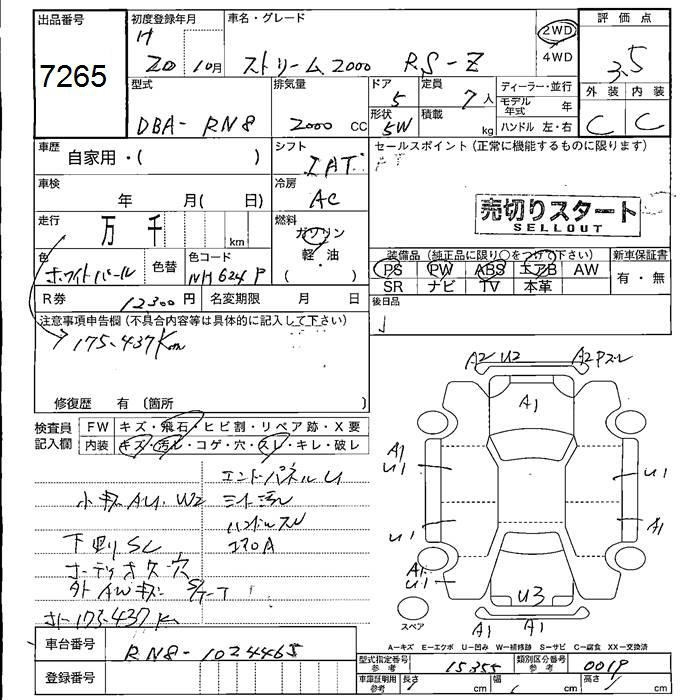 出品番号
7265
初度登録年月
H
20 10月
車名・グレード
ストリーム2000 RS-Z
2WD
4WD
評価点
3.5
外装 内装
C C
型式
DBA-RN8
排気量
2000 cc
ドア
5
形状
5W
定員
7人
積載
kg
ディーラー・並行
モデル年式 年
ハンドル 左・右
車歴
自家用・( )
シフト
IAT
セールスポイント(正常に機能するものに限ります)
車検
年 月( 日)
冷房
AC
売切りスタート
SELLOUT
走行
万 千 km
燃料
ガソリン
軽・油
・
色
ホワイトパール
色替
色コード
NH624P
装備品 (純正品に限り○をつけて下さい)
PS PW ABS エアB AW
SR ナビ TV 本革
新車保証書
有・無
R券
12,300円
名変期限 月 日
後日品
注意事項申告欄(不具合内容等は具体的に記入して下さい)
175,437Km
修復歴 有 (箇所 )
検査員記入欄
FW キズ・飛石・ヒビ割・リペア跡・X要
内装 キズ・汚レ・コゲ・穴・スレ・キレ・破レ
エンドパネルU
小キズ AU. W2
ハンドルスレ
エアロA
下回りSC
外AWキズ
175,437Km
車台番号
RN8-1024465
登録番号
A2 U2 A2
A1
A1
U1
U1
U1
A1
A1
U1
U3
A1 A1
スペア
A-キズ E-エクボ U-凹み W-補修跡 S-サビ C-腐食 XX-交換済
型式指定番号
参考
15355
類別区分番号
参考
0019
車庫証明用
参考
長さ cm
幅 cm
高さ cm